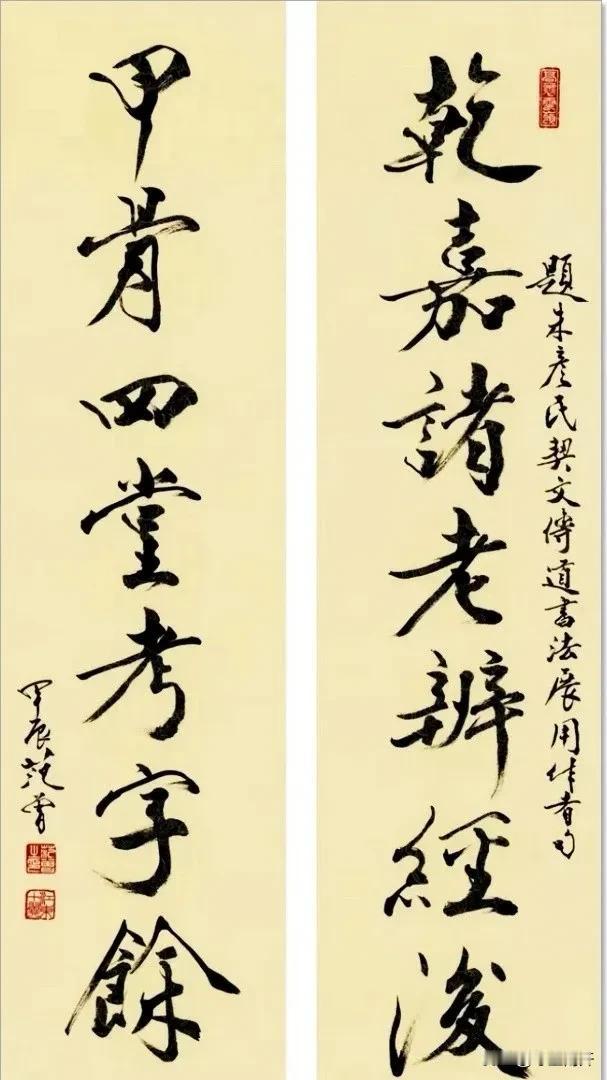 題朱彥民契文傳道書法展用作者句
乾嘉諸老辨經後
甲骨四堂考字餘
甲辰范曾